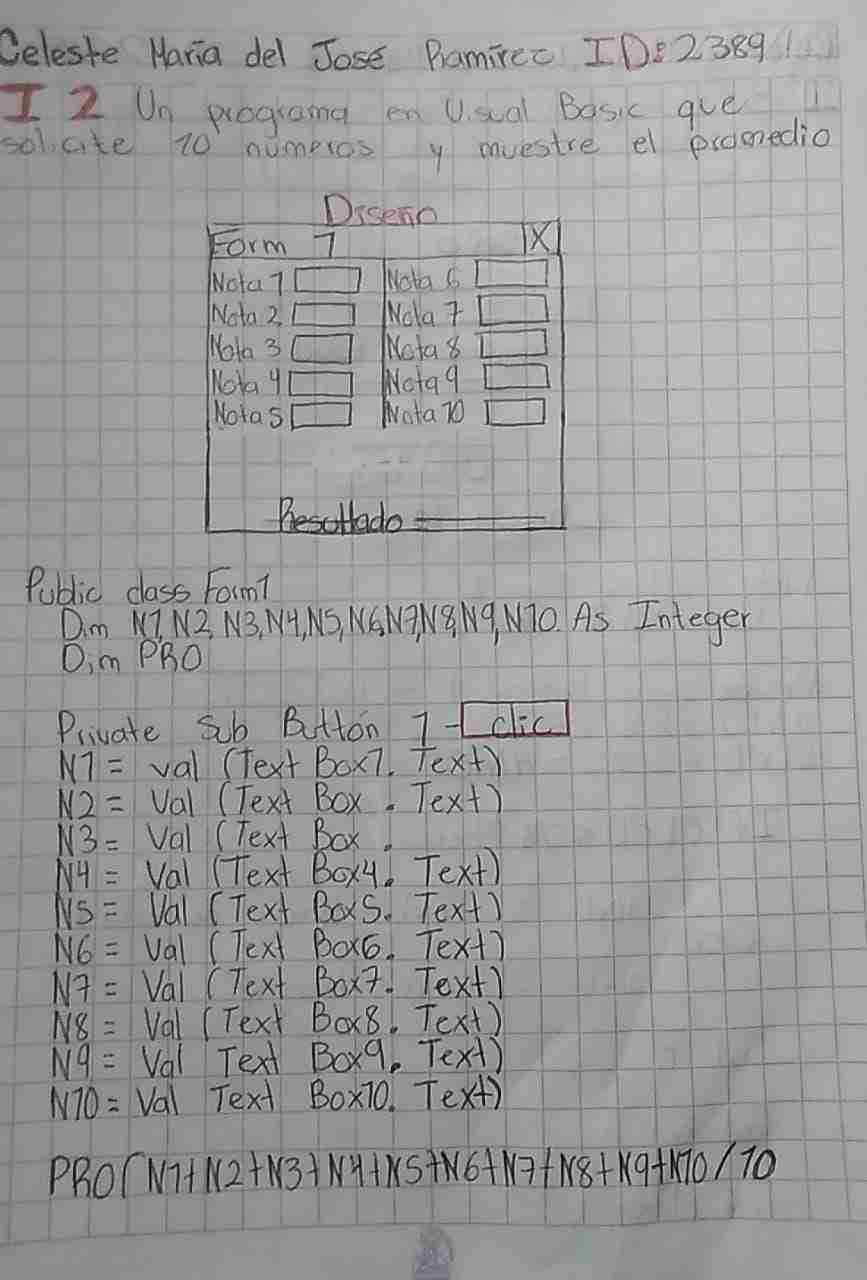 Celeste María del José Ramírez ID: 2389
I 2 Un programa en Visual Basic que
solicite 10 números y muestre el promedio
Diseño
Form 1 X
Nota 1 Nota 6
Nota 2 Nota 7
Nota 3 Nota 8
Nota 4 Nota 9
Nota 5 Nota 10
Resultado
Public class Form1
Dim N1, N2, N3, N4, N5, N6, N7, N8, N9, N10 As Integer
Dim PRO
Private Sub Button 1 - clic
N1 = val (Text Box1. Text)
N2 = Val (Text Box . Text)
N3 = Val (Text Box .
N4 = Val (Text Box4. Text)
N5 = Val (Text Box5. Text)
N6 = Val (Text Box6. Text)
N7 = Val (Text Box7. Text)
N8 = Val (Text Box8. Text)
N9 = Val Text Box9. Text)
N10 = Val Text Box10. Text)
PRO(N1+N2+N3+N4+N5+N6+N7+N8+N9+N10/10